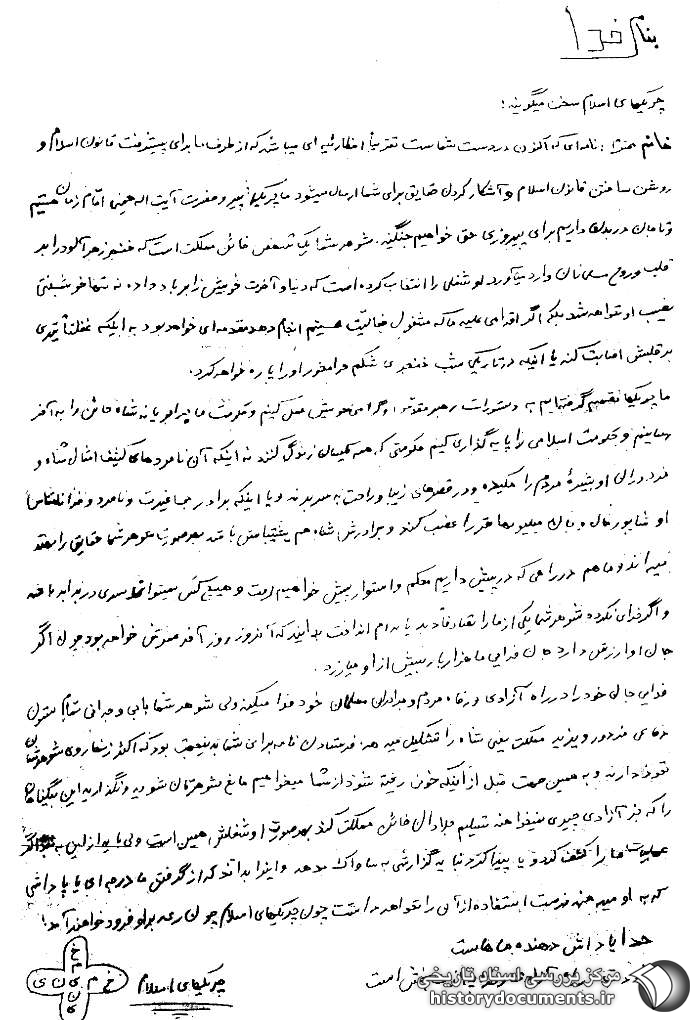 بنام خدا
چریکهای اسلام سخن میگویند!
خانم محترم: نامه‌ای که اکنون در دست شماست تقریباً اخطاریه ای میباشد که از طرف ما برای پیشرفت قانون اسلام و
روشن ساختن قانون اسلام و آشکار کردن حقایق برای شما ارسال میشود ما چریکها پیرو حضرت آیت اله خمینی امام زمان هستیم
و تا جان در بدن داریم برای پیروزی حق خواهیم جنگید. شوهر شما یک شخص خائن مملکت است که خنجر زهرآلود را بر
قلب و روح مسلمانان وارد میآورد او شغلی را انتخاب کرده است که دنیا و آخرت خویش را بر باد داده نه تنها خوشبختی
نصیب او نخواهد شد بلکه اگر اقدامی علیه ما که مشغول فعالیت هستیم انجام دهد مقدمه ای خواهد بود به اینکه غفلتاً تیری
بر قلبش اصابت کند یا اینکه در تاریکی شب خنجری شکم حرامخور او را پاره خواهد کرد.
ما چریکها تصمیم گرفته‌ایم به دستورات رهبر خویش عمل کنیم و حکومت شاه خائن را به آخر
رسانیم و حکومت اسلامی را پایه گذاری کنیم حکومتی که همه یکسان زندگی کنند نه اینکه آن نامردهای کثیف امثال شاه و
مزدوران او شیرهٔ مردم را مکیده و در قصرهای زیبا و راحت به سر برند و یا اینکه برادر بیغیرت و نامرد و
او شاپور میلیونها متر را غصب کند و برادرش شاه هم پشتیبانش باشد بهر صورت شوهر شما حقایق را بهتر
میداند و ما هم در راهی که در پیش داریم محکم و استوار پیش خواهیم رفت و هیچ کس نمیتواند سدی در برابر ما شود
و اگر خدای نکرده شوهر شما یکی از ما را یا به دام انداخت بداند که آنروز روز آخر عمرش خواهد بود چون اگر
جان او ارزش دارد جان فدایی ما هزار بار بیش از او میارزد.
فدایی جان خود را در راه آزادی و رفاه مردم و برادران مسلمان خود فدا میکند ولی شوهر شما با بی وجدانی تمام ستون
مزدور و یزید مملکت یعنی شاه را تشکیل میدهد فرستادن نامه برای شما بدینجهت بود که اکثر زنها روی شوهرشان
نفوذ دارند و به همین جهت قبل از اینکه خون ریخته شود از شما میخواهیم مانع شوهرتان شوید و نگذارید این بیگناهان
را که جز آزادی چیزی نمیخواهند تسلیم جلادان خائن مملکت کند بهر صورت او شغلش همین است ولی باید از این به بعد اگر
عملیات ما را کشف کند و یا پیدا کرد نباید گزارشی به ساواک بدهد و اینرا بداند که از گرفتن ما درجه ای یا پاداشی
که به او میدهند فرصت استفاده از آن را نخواهد داشت چون چریکهای اسلام چون رعد بر او فرود خواهند آمد!
خدا پاداش دهنده ماهاست
است
چریکهای اسلام
مرکز بررسی اسناد تاریخی
historydocuments.ir